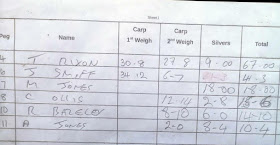 Peg Name Carp 1st Weigh Carp 2nd Weigh Silvers Total
J DIXON 30-8 27-8 9-00 67-00
J SMIFF 34-2 6-7
7 M JONES 18-00 18-00
8 C OLLIS 12-14 2-8
10 R BALELEY 8-10 6-0 14-10
11 A JONES 2-0 8-4 10-4